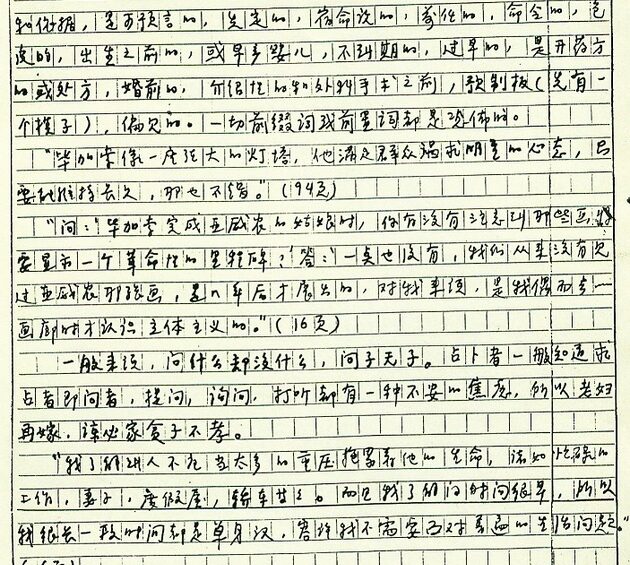 和依据，是可预言的，先定的，宿命论的，前任的，命令的，包
皮的，出生之前的，或早产婴儿，不到期的，过早的，是开药方
的或处方，婚前的，介绍性的和外科手术之前，预制板（先有一
个模子），偏见的。一切前缀词或前置词都是观佈的。
“毕加索像一座强大的灯塔，他满足群众渴求明星的心态，只
要他维持长久，那也不错。”（94页）
“问：‘毕加索完成亚威农的姑娘时，你有没有注意到那些画将
要显示一个革命性的里程碑？’答：‘一点也没有，我们从来没有见
过亚威农那张画，是几年后才展出的，对我来说，是我偶而去一
画廊时才认识立体主义的。”（16页）
一般来说，问什么却没什么，问子无子。占卜者一般知道求
占者即问者，提问，询问，打听都有一种不安的焦虑，所以老妇
再嫁，谅必家贫子不孝。
“我了解到人不应当太多的重压拖累着他的生命，诸如忙碌的
工作，妻子，度假屋，轿车等等。而且我了解的时间很早，所以
我很长一段时间都是单身汉，容许我不需要面对普遍的生活问题。”